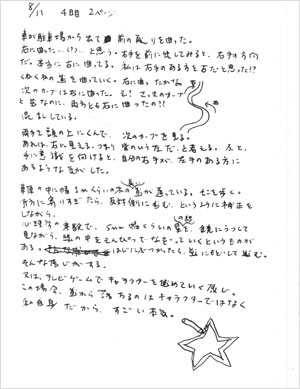 8/11 4日目 2ページ
車が駐車場から出て 前の通りを曲った。
右に曲った…(?)…と思う。右手を前に出してみると、右手も方向
だ。本当に右に曲ってる。私は右手のある方を右だと思った!?
くねくねの道を曲っていく。右に曲ったかな。
次のカーブは左に曲った。え! さっきのカーブ
と逆なのに、両方とも右に曲ったの?!
混乱している。
両手を頭の上にくんで、次のカーブを見る。
あれは、右に見える。つまり 私のいう左だ、と考える。ふと、
手に意識を向けると、自分の右手が、左手のある方に
あるような気がした。
草原の中に幅 くらいの木の長い道が通っている。そこを歩く。
片方に寄りすぎたら、反対側に進む、というように補正を
しながら。
心理学の実験で、5mm幅くらいの星の絵を、鏡にうつして
見ながら、線の中をえんぴつでなぞっていくというものが
ある。 はじにぶつかったら、逆にもどして進む。
そんな感じがする。
又は、テレビゲームでキャラクターを進めていく感じ。
この場合、道から落ちるのはキャラクターではなく
私自身だから、すごい本気。